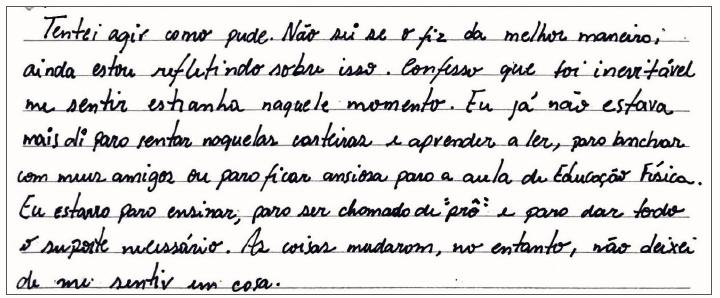 Tentei agir como pude. Não sei se o fiz da melhor maneira;
ainda estou refletindo sobre isso. Confesso que foi inevitável
me sentir estranha naquele momento. Eu já não estava
mais ali para sentar naquelas carteiras e aprender a ler, para lanchar
com meus amigos ou para ficar ansiosa para a aula de Educação Física.
Eu estava para ensinar, para ser chamada de "prô" e para dar todo
o suporte necessário. As coisas mudaram, no entanto, não deixei
de me sentir em casa.